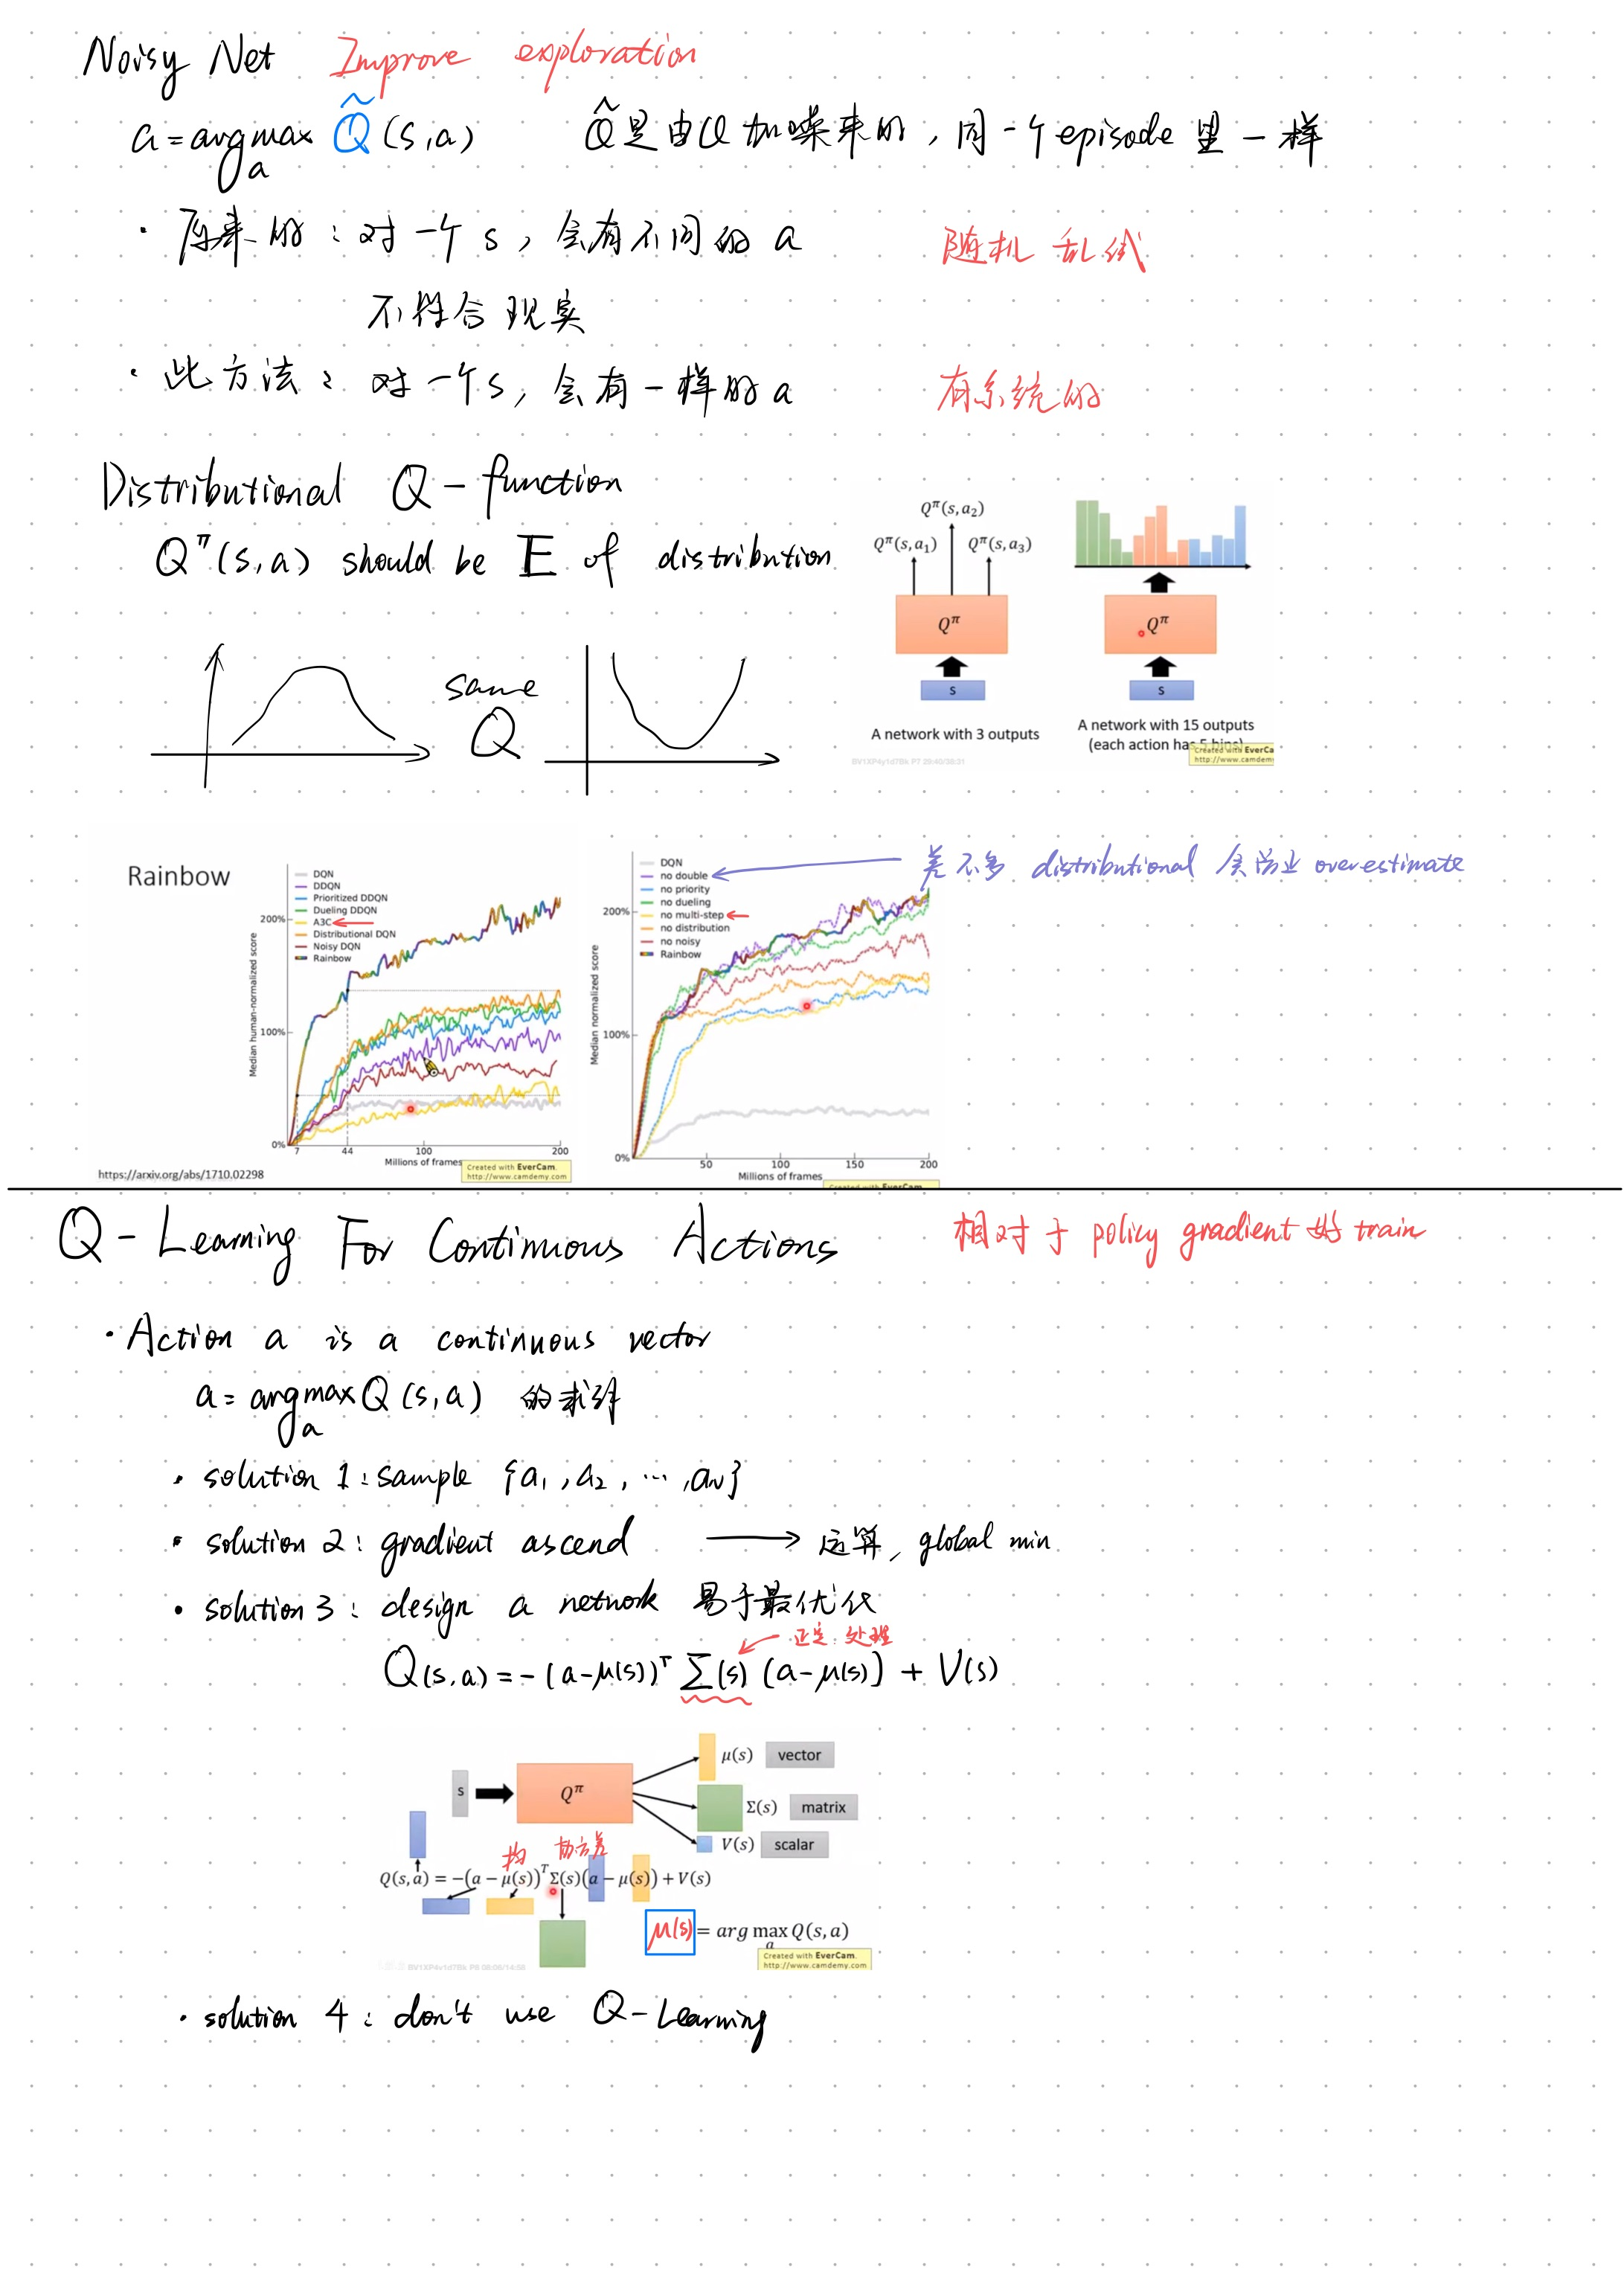 Noisy Net Improve exploration
a = arg max Q̃ (s,a) Q̂是由Q加噪来的,同一个episode里一样
a
· 原来的:对一个s,会有不同的a 随机乱试
不符合现实
· 此方法:对一个s,会有一样的a 有系统的
Distributional Q-function
Q^π(s,a) should be E of distribution
same
Q
Q^π(s,a₂)
Q^π(s,a₁) Q^π(s,a₃)
Q^π
s
A network with 3 outputs
Q^π
s
A network with 15 outputs
(each action has 5 bins)
Created with EverCa
http://www.camdem
BV1XP4y1d7Bk P7 29:40/30:31
Rainbow
DQN
DDQN
Prioritized DDQN
Dueling DDQN
A3C
Distributional DQN
Noisy DQN
Rainbow
Median human-normalized score
200%
100%
0%
7 44 100 200
Millions of frames
Created with EverCam.
http://www.camdemy.com
https://arxiv.org/abs/1710.02298
DQN
no double
no priority
no dueling
no multi-step
no distribution
no noisy
Rainbow
Median normalized score
200%
100%
0%
50 100 150 200
Millions of frames
Created with EverCam
差不多 distributional 会防止 overestimate
Q-Learning For Continuous Actions 相对于 policy gradient 好 train
· Action a is a continuous vector
a = arg max Q(s,a) 的求解
a
· solution 1: sample {a₁,a₂,⋯,a_N}
· solution 2: gradient ascend → 运算, global min
· solution 3: design a network 易于最优化
← 正定处理
Q(s,a) = -(a-μ(s))ᵀ Σ(s) (a-μ(s)) + V(s)
s
Q^π
μ(s) vector
Σ(s) matrix
V(s) scalar
均 协方差
Q(s,a) = -(a - μ(s))ᵀΣ(s)(a - μ(s)) + V(s)
μ(s) = arg max Q(s,a)
a
Created with EverCam.
http://www.camdemy.com
· solution 4: don't use Q-Learning